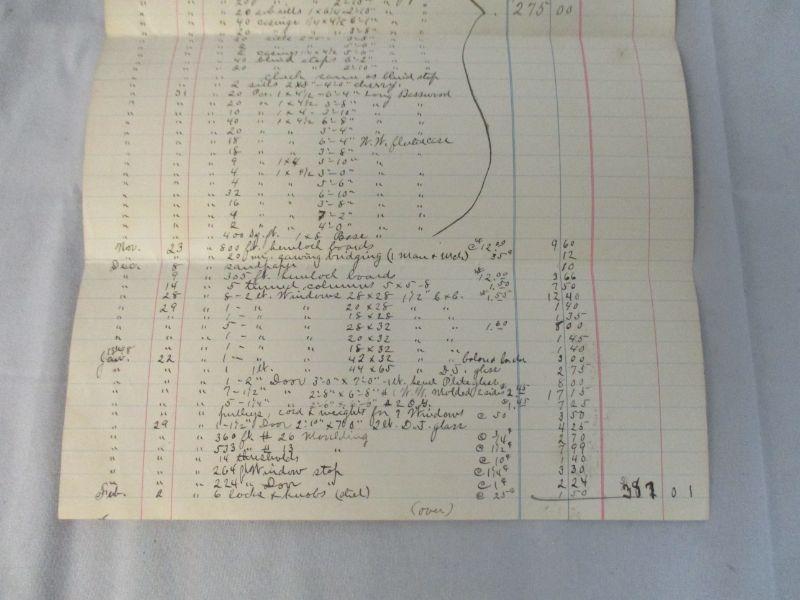 " " " 20 subsills 1 x 6 1/4 - 2'-10" . 275 00
" " " 40 casings 1 1/4 x 4 1/2 6'-4"
" " " 20 " " 3'-8"
" " " 2 casings 1 1/4 x 4 1/2 5'-6"
" " " 40 blind stops 6'-2"
" " " 20 " " 2'-10"
" " " same as blind stop
" " " 2 sills 2 x 8 - 4'-0" cherry.
" 31 " 20 Pcs. 1 x 4 1/2 - 6'-4" Long Basswood
" " " 20 " 1 x 4 1/2 3'-8" " "
" " " 10 " 1 x 4 - 3'-10" " "
" " " 40 " 1 x 4 1/2 6'-8" " "
" " " 20 " " 3'-4" " "
" " " 18 " " 6'-4" W.W.
" " " 18 " " 3'-8" " "
" " " 9 " 1 x 4 3'-10" " "
" " " 4 " 1 x 4 1/2 3'-0" " "
" " " 4 " " 5'-6" " "
" " " 32 " " 6'-10" " "
" " " 16 " " 3'-8" " "
" " " 4 " " 7'-2" " "
" " " 2 " " 4'-0" " "
" " " 400 Sq. ft. 1 x 8 Base "
Nov. 23 " 800 ft. hemlock boards @ 12.00 9 60
" " " 20 bridging (1 man + mch) 35¢ 12
Dec. 8 " sandpaper 10
" 9 " 305 ft. hemlock boards 12.00 3 66
" 14 " 5 columns 5 x 5-8 1.50 7 50
" 28 " 8 - 2 lt. Windows 28 x 28 1 1/2" 1.55 12 40
" 29 " 1 - " " 20 x 28 " " 1 40
" " " 1 - " " 18 x 28 " " 1 35
" " " 5 - " " 28 x 32 " " 1.60 8 00
" " " 1 - " " 20 x 32 " " 1 45
" " " 1 - " " 18 x 32 " " 1 40
Jan. 22 " 1 - " " 42 x 32 " " Colored border 3 00
" " " 1 1 lt. " 44 x 65 " D.S. glass 2 75
" " " 1 - 2" Door 3'-0" x 7'-0" - 1 lt. Plate glass 8 00
" " " 7 - 1 1/2" " 2'-8" x 6'-8" (W.W. Molded 2 sides 2.45 17 15
" " " 5 - 1 1/4" " 2'-0" 1.45 7 25
" " " pulleys, cord & weights for 7 Windows @ 50 3 50
" 29 " 1 - 1 1/2" Door 2'-10" x 7'-0" 2 lt. D.S. glass 4 25
" " " 360 ft # 26 Moulding @ 3/4¢ 2 70
" " " 533 " # 13 " @ 1 1/2¢ 7 99
" " " 14 thresholds @ 10¢ 1 40
" " " 264 ft Window stop @ 1 1/4¢ 3 30
" " " 224 " Door " @ 1¢ 2 24
Feb. 2 " 6 locks & knobs (steel) @ 25¢ 1 50 387 01
(over)